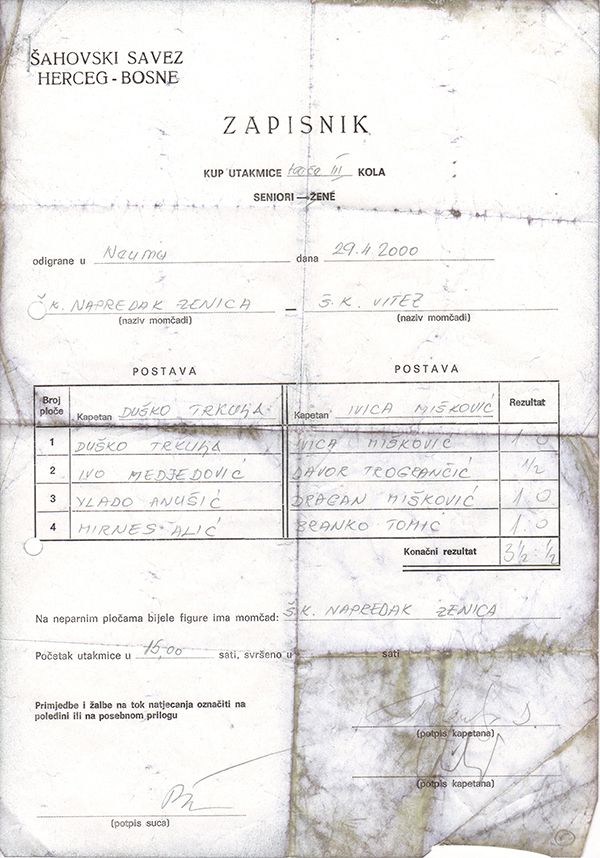 ŠAHOVSKI SAVEZ
HERCEG-BOSNE
ZAPISNIK
KUP UTAKMICE III KOLA
SENIORI — ŽENE
odigrane u Neumu dana 29.4.2000
Š.K. NAPREDAK ZENICA — Š.K. VITEZ
(naziv momčadi) (naziv momčadi)
POSTAVA POSTAVA
Broj ploče Kapetan DUŠKO TRKULJA Kapetan IVICA MIŠKOVIĆ Rezultat
1 DUŠKO TRKULJA IVICA MIŠKOVIĆ 1 0
2 IVO MEDJEDOVIĆ DAVOR TROGRANČIĆ 1/2
3 VLADO ANUŠIĆ DRAGAN MIŠKOVIĆ 1 0
4 MIRNES ALIĆ BRANKO TOMIĆ 1.0
Konačni rezultat 3 1/2 : 1/2
Na neparnim pločama bijele figure ima momčad: Š.K. NAPREDAK ZENICA
Početak utakmice u 15,00 sati, svršeno u sati
Primjedbe i žalbe na tok natjecanja označiti na
poleđini ili na posebnom prilogu
(potpis kapetana)
(potpis kapetana)
(potpis suca)